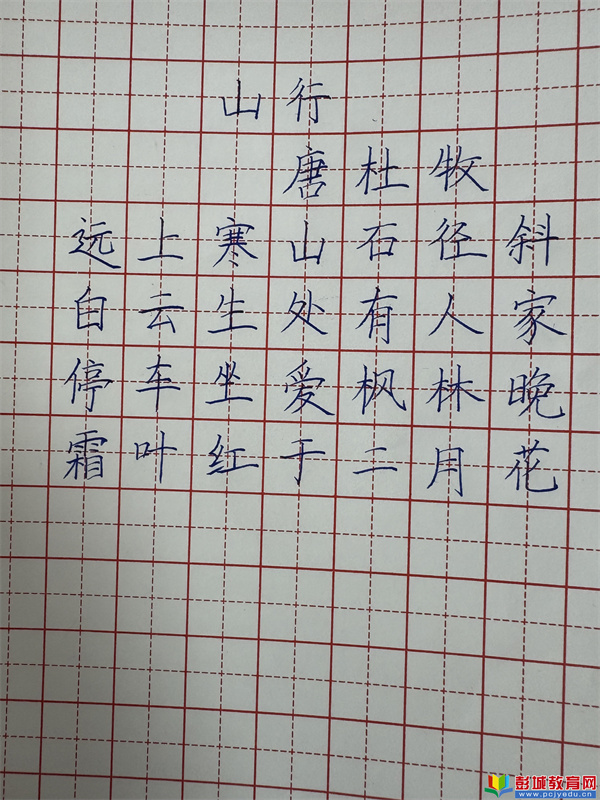 山行
唐杜牧
远上寒山石径斜
白云生处有人家
停车坐爱枫林晚
霜叶红于二月花
彭城教育网
www.pcjyedu.cn